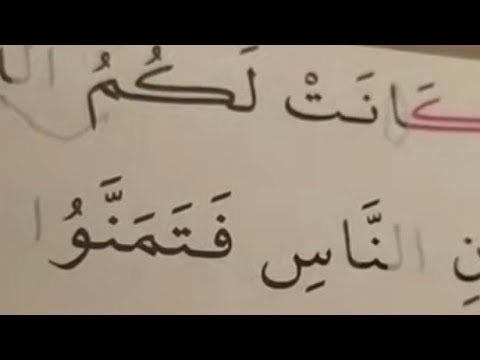 كَانَتْ لَكُمُ ال
نِ النَّاسِ فَتَمَنَّوُا